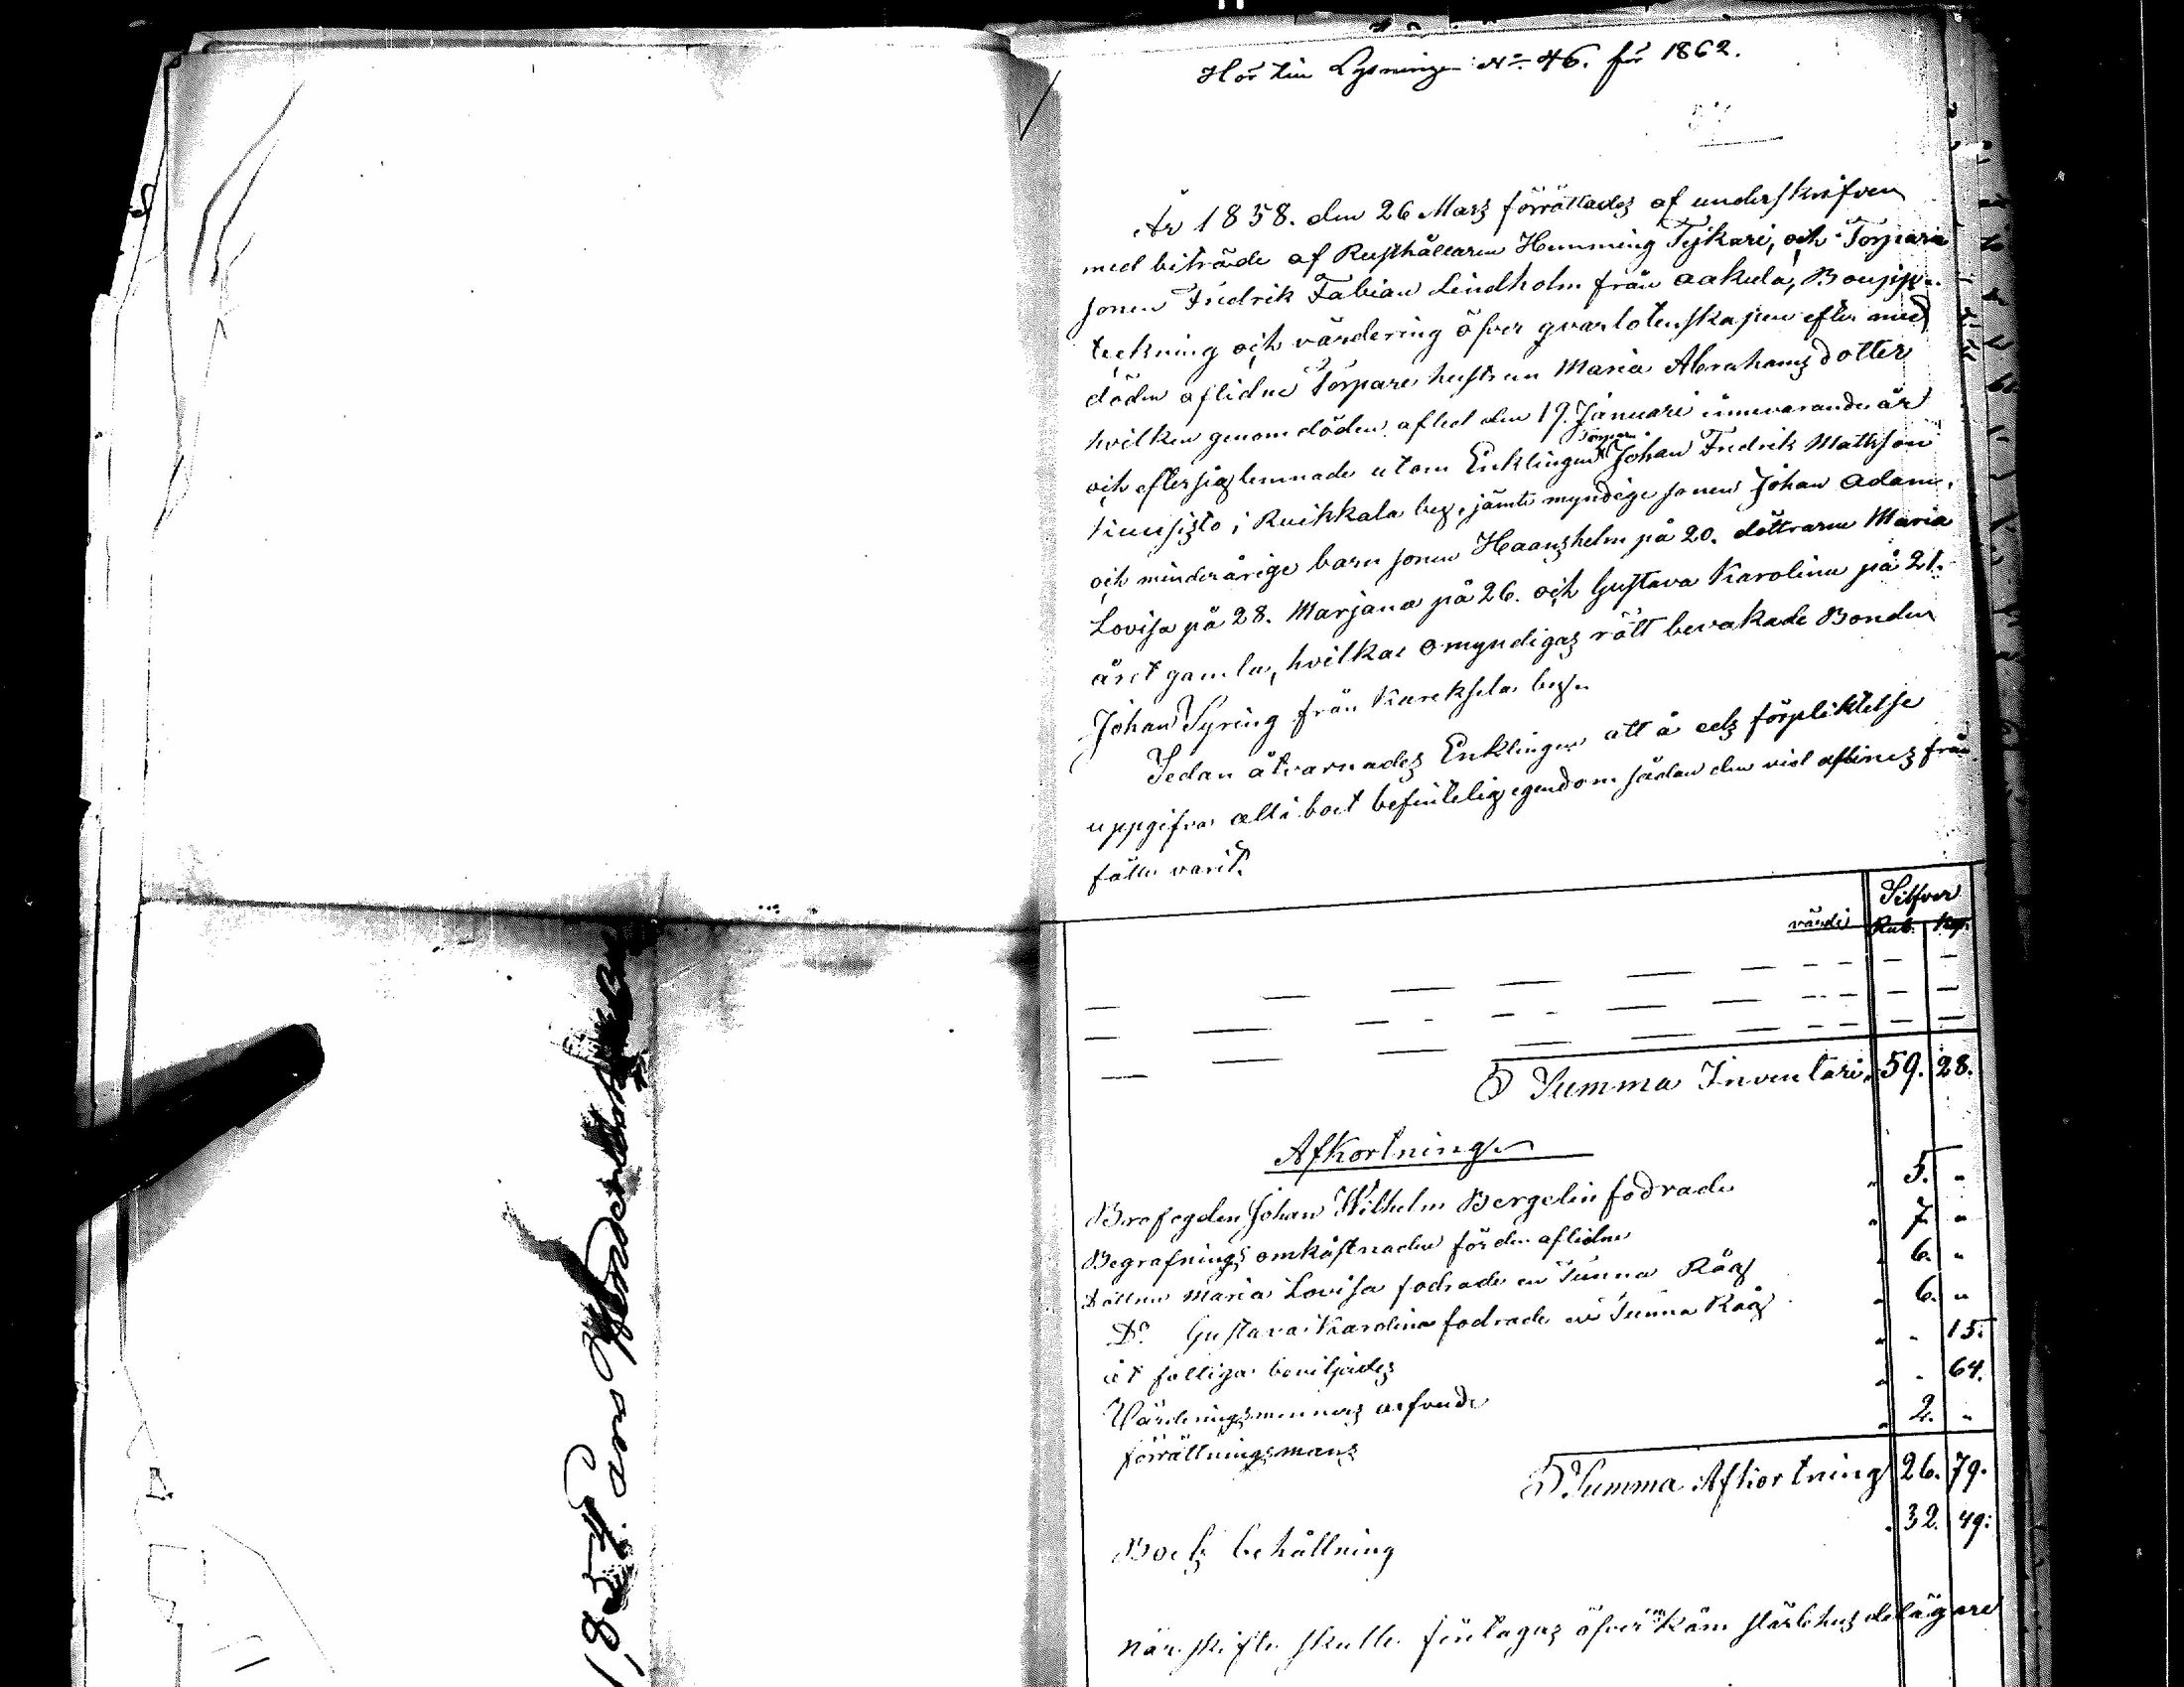 Hör till Lysningen No. 46. för 1862.
År 1858. den 26 Mars förrättades af underskrifven
med biträde af Rusthållaren Hemming Tykari, och Torpare
sonen Fredrik Fabian Lindholm från Aakula, Boupp-
teckning och värdering öfver qvarlotenskapen efter med
döden aflidne Torpare hustrun Maria Abrahams dotter
hvilken genom döden afled den 19. Januari innevarande år
och efter sig lemnade utom Enklingen Torparn Johan Fredrik Mattsson
i Ruikkala by, jämte myndige sonen Johan Adam,
och minderårige barn sonen Haanshelm på 20. döttrarne Maria
Lovisa på 28. Marjana på 26. och Gustava Karolina på 21.
året gamla, hvilkas omyndigas rätt bevakade Bonden
Johan Syring från Kareksela by.
Sedan åtvarnades Enklingen att å eds förpliktelse
uppgifva allt i boet befintelig egendom sådan den vid aflines från
fälle varit.
värde Silfver
Rub. Kop.
Summa Inventari. 59. 28.
Afkortning
Brofogden Johan Wilhelm Bergelin fodrade " 5. "
Begrafnings omkåstnaden för den aflidne " 7. "
Dottren Maria Lovisa fodrade en Tunna Råg " 6. "
Do. Gustava Karolina fodrade en Tunna Råg " 6. "
åt fattiga beviljades " " 15.
Värderingsmennens arfvode " " 64.
förrättningsmans " 2. "
Summa Afkortning 26. 79.
Boets behållning " 32. 49.
När skifte skulle företagas öfver ens kom stärbhus delägare
1854. ans